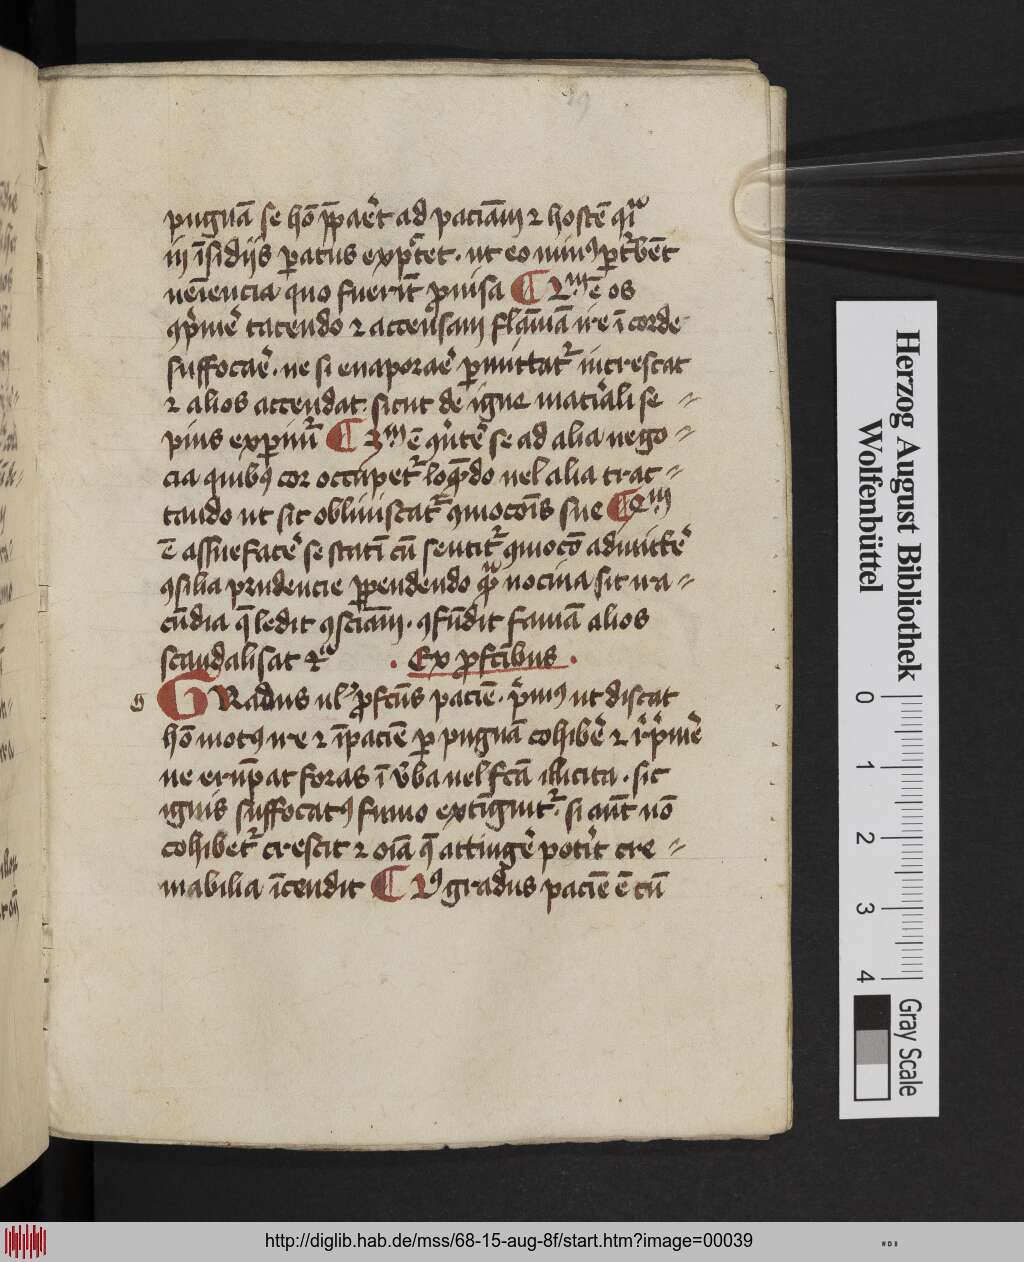 pugnā se hō p̄paret ad paciam̄ ⁊ hostē qͣi
in īsidijs ꝑatus exp̄tet · ut eo minꝰ ꝑt͛bēt
ueīencia quo fuerīt p̄uisa ¶ 2m ē os
cͦp̄me͛ tacendo ⁊ accensam flāmā ire ī corde
suffocare͛ · ne si euaporare͛ ꝑmittat͛ increscat
⁊ alios accendat · sicut de igne mat͛iali se =
pius exꝑim͛ ¶ 3m ē ꝯu͛te͛ se ad alia nego =
cia quibꝰ cor occupet͛ loq̄ndo uel alia trac =
tando ut sic obliuiscat͛ ꝯmocōis sue ¶ 4m
ē assueface͛ se statī cū sentit͛ ꝯmocō admitte͛
ꝯsilia prudencie ꝑpendendo qͣ nociua sit ira =
cūdia q̄ ledit ꝯsciam̄ · ꝯfūdit famā alios
scandalisat ⁊cͣ · Ex ꝓfcībus ·
g GRadus ul͛ ꝓfcūs pacie̅ · p͛mꝰ ut discat
hō motꝰ ire ⁊ īpacie̅ ꝑ pugnā cohibe͛ ⁊ rep͛me͛
ne erūpat foras ī u͛ba uel fcā illicita · sic
ignis suffocatꝰ fumo extīguit͛ · si aūt nō
cohibet͛ crescit ⁊ oīa q̄ attinge͛ pot͛it cre =
mabilia īcendit ¶ 2ꝰ gradus pacie̅ ē cū
Herzog August Bibliothek
Wolfenbüttel
0 1 2 3 4
Gray Scale
http://diglib.hab.de/mss/68-15-aug-8f/start.htm?image=00039